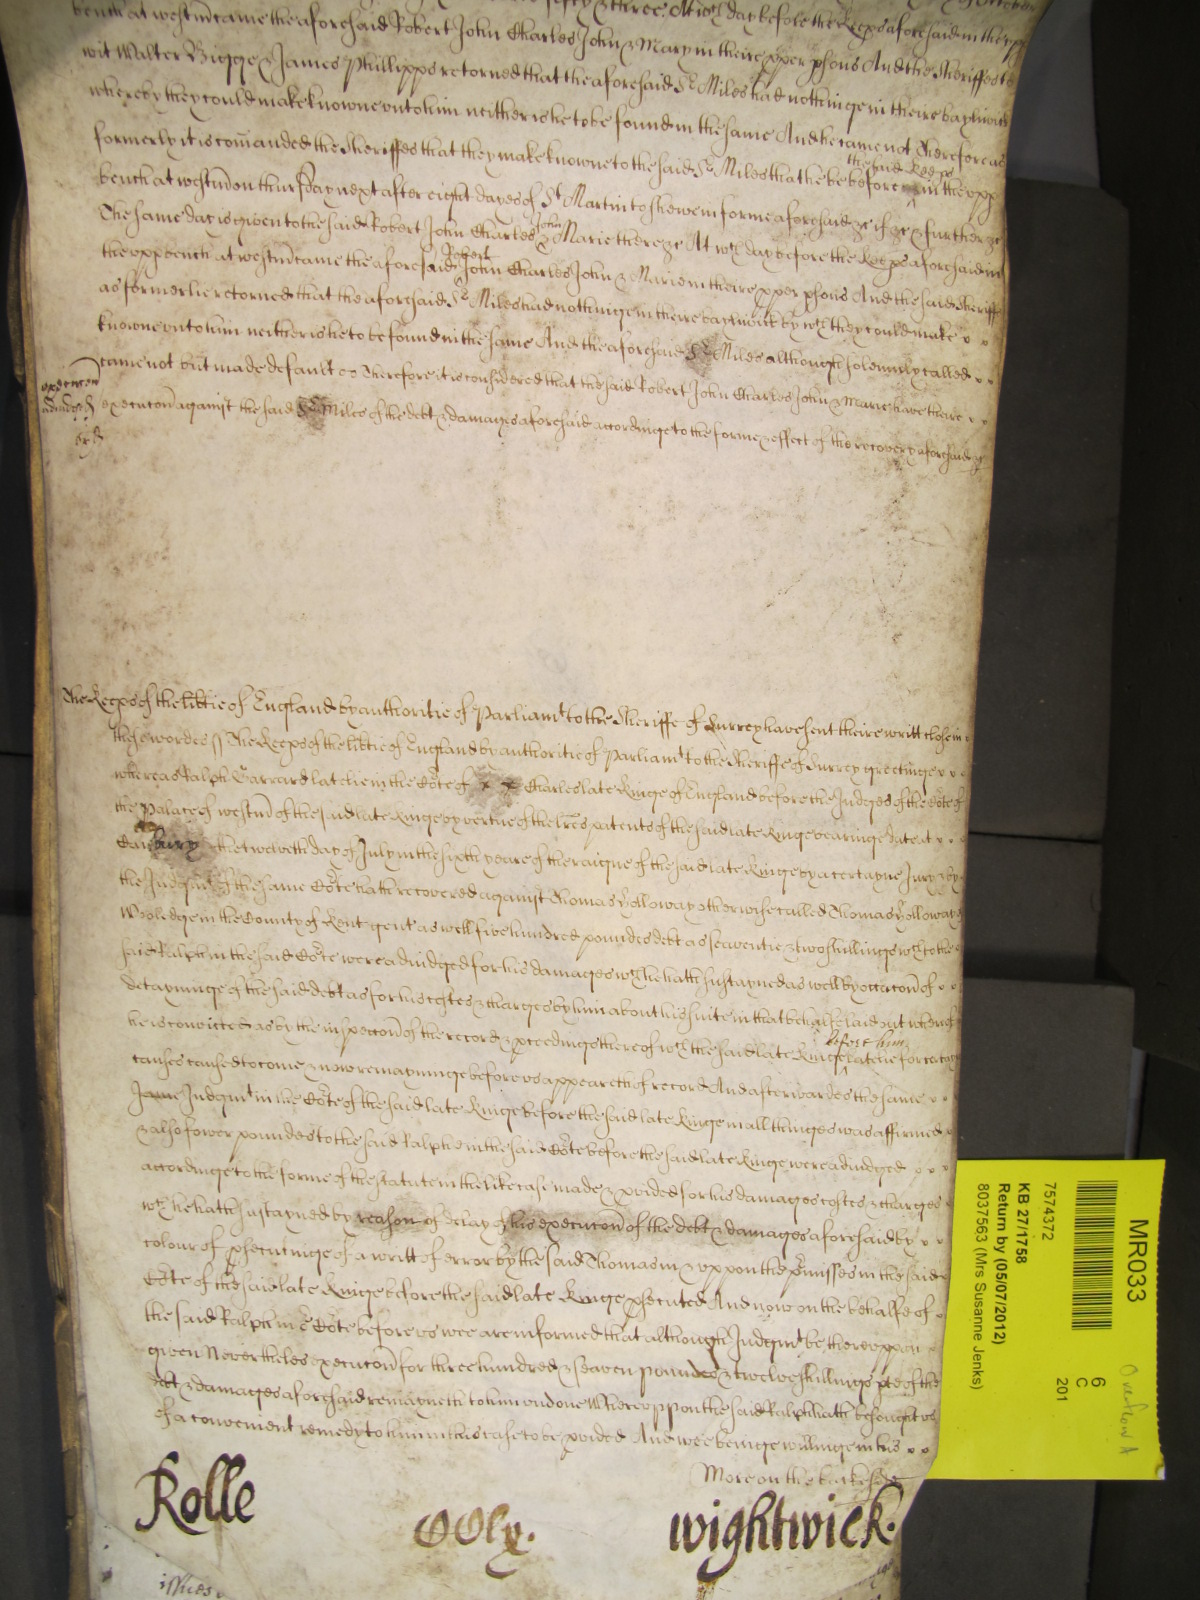 bench at westm̃ came the aforesaid Robert John Charles John & Mary in theire ꝓper ꝑsons And the Sheriffes to
wit Walter Bigge & James Phillipps retorned that the aforesaid Sr Miles had nothinge in theire baylywick
whereby they could make knowne vnto him neither is he to be found in the same And he came not Therefore as
formerly it is com̃anded the Sheriffes that they make knowne to the said Sr Miles that he be before the said Keeps in the vpp
bench at westm̃ on thursday next after eight dayes of St Martin to shewe in forme aforesaid &c if &c & further &c
The same day is given to the said Robert John Charles John & Marie there &c At wch day before the Keeps aforesaid in
the vpp bench at westm̃ came the aforesaid Robert John Charles John & Marie in theire ꝓper ꝑsons And the said Sheriffs
as formerlie retorned that the aforesaid Sr Miles had nothinge in theire baylywick by wch they could make
knowne vnto him neither is he to be found in the same And the aforesaid Sr Miles although solemnly called
came not but made default Therefore it is considered that the said Robert John Charles John & Marie have there
execucon
adiudged
execucõn against the said Sr Miles of the debt & damages aforesaid accordinge to the forme & effect of the recovery aforesaid &c
The Keeps of the lib̃tie of England by authoritie of Parliamt to the Sheriffe of Surrey have sent theire writt close in
these wordes The Keeps of the lib̃tie of England by authoritie of Parliamt to the Sheriffe of Surrey greetinge
whereas Ralph Garrard latelie in the Co͠te of Charles late Kinge of England before the Judges of the Co͠te of
the Palace of westm̃ of the said late Kinge by vertue of the l͠res patents of the said late Kinge bearinge date at
Canbury the twelveth day of July in the sixth yeare of the raigne of the said late Kinge by a certayne Jury & by
the Judgmt of the same Co͠te hath recovered against Thomas Holloway otherwise called Thomas Holloway of
Wooledge in the County of Kent gent as well five hundred poundes debt as seaventie & two shillings wch to the
said Ralph in the said Co͠te were adiudged for his damages wch he hath sustayned as well by occacõn of
detayninge of the said debt as for his costes & charges by him about his suite in that behalfe laid out whereof
he is convicted as by the inspeccõn of the record & ꝓceedings thereof wch the said late Kinge before him latelie for certayn
causes caused to come & now remayninge before vs appeareth of record And afterwardes the same
Judgmt in the Co͠te of the said late Kinge before the said late Kinge in all thinges was affirmed
& also fower poundes to the said Ralph in the said Co͠te before the said late Kinge were adiudged
accordinge to the forme of the statute in the like case made & ꝓvided for his damages costes & charges
wch he hath sustayned by reason of delay of his execucõn of the debt & damages aforesaid by
colour of ꝓsecutinge of a writt of error by the said Thomas in & vppon the p͠misses in the said
Co͠te of the said late Kinge before the said late Kinge ꝓsecuted And now on the behalfe of
the said Ralph in ye Co͠te before vs wee are informed that although Judgmt be therevppon
given Nevertheles execucõn for three hundred & seaven poundes & twelve shillings ꝑte of the
debt & damages aforesaid remayneth to him vndone Wherevppon the said Ralph hath besought vs
of a convenient remedy to him in this case to be ꝓvided And wee beinge willinge in this
More on the backeside
Rolle
OOly.
wightwick.
issues
MR033
7574372
KB 27/1758
Return by (05/07/2012)
8037563 (Mrs Susanne Jenks)
6
C
201
Overflow A